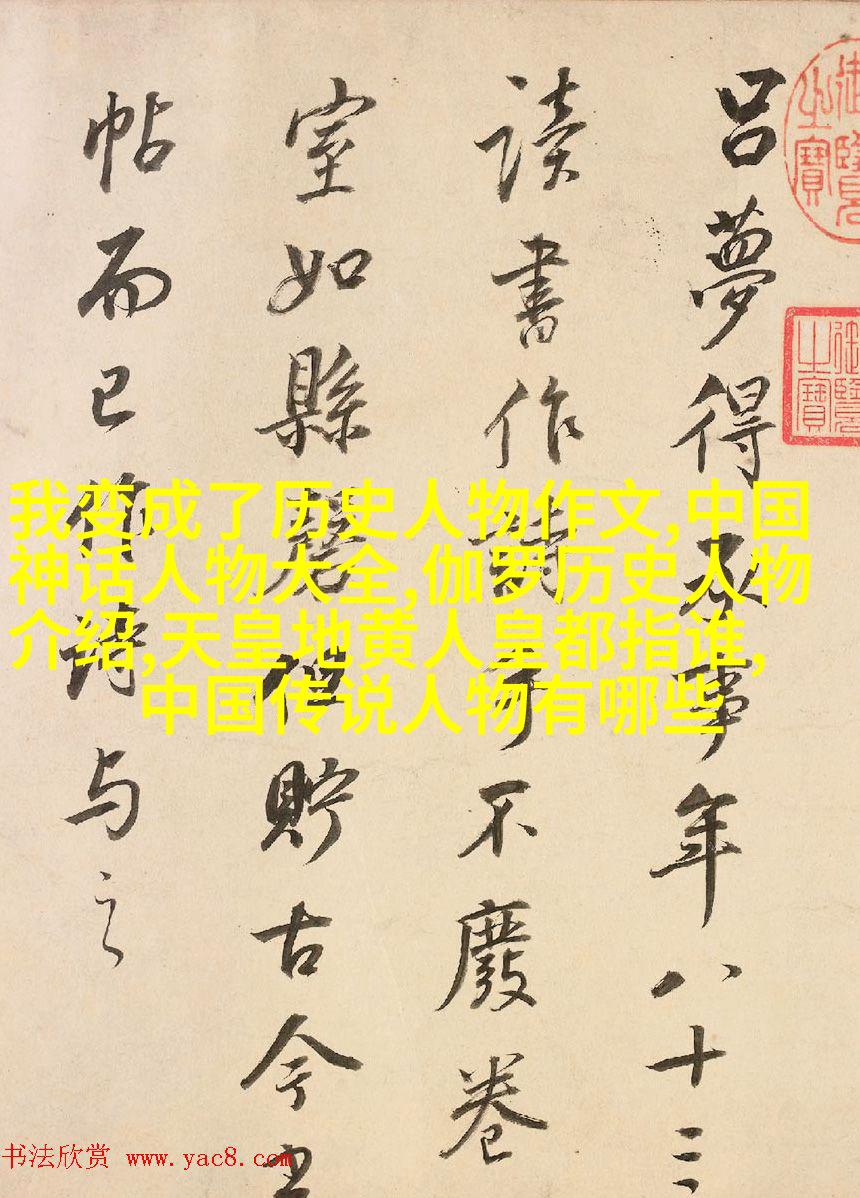 吕夢得承事年八十三
讀書作詩手不廢卷
室如縣罄但貯古今
帖而已作詩与之
御覽之寶
御覽之寶
我变成了历史人物作文,中国
神话人物大全,伽罗历史人物
介绍,天皇地黄人皇都指谁,
中国传说人物有哪些
书法欣赏 www.yac8.com